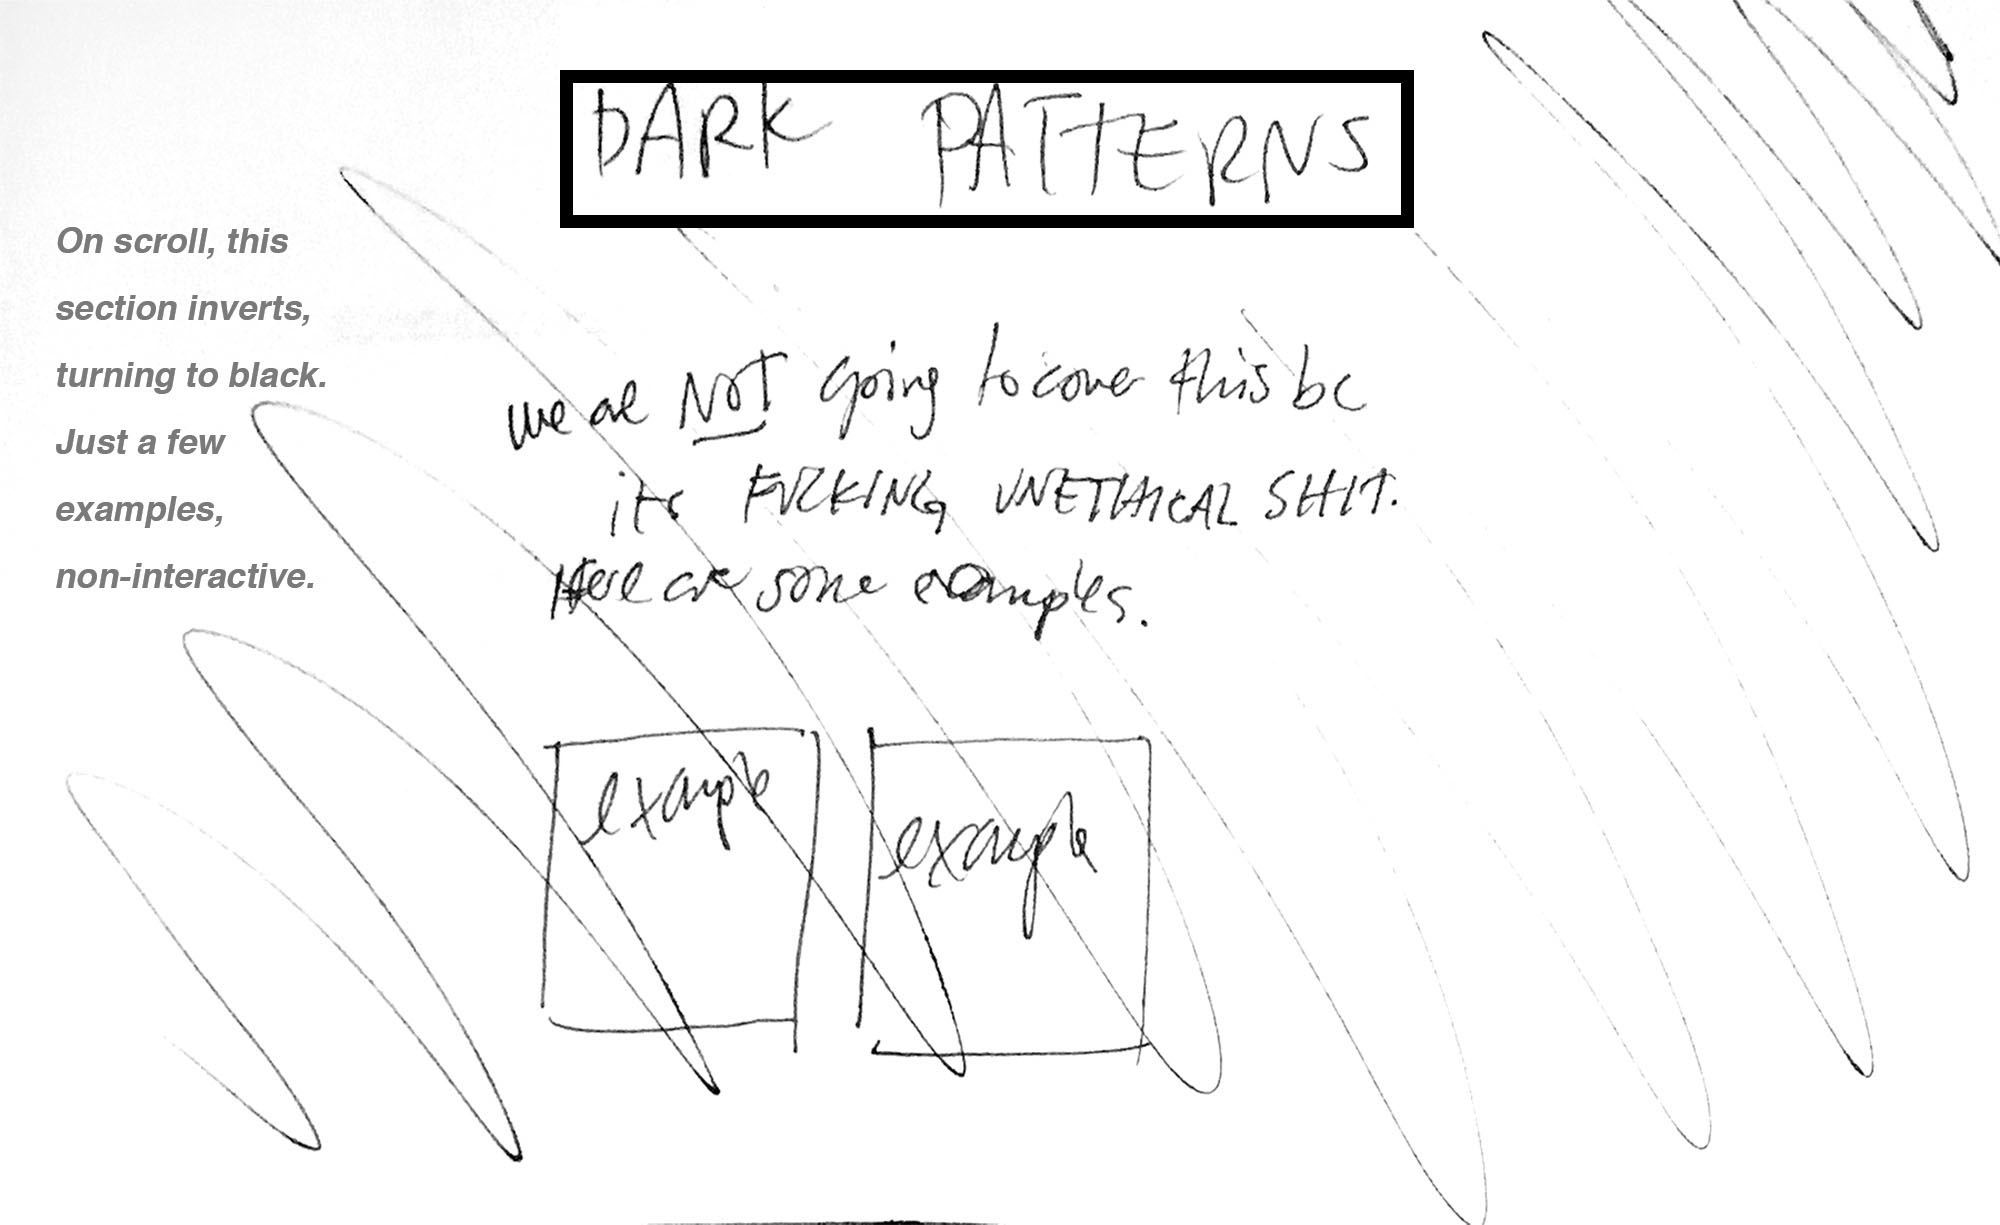 DARK PATTERNS
On scroll, this
section inverts,
turning to black.
Just a few
examples,
non-interactive.
we are NOT going to cover this bc
its FUCKING UNETHICAL SHIT.
Here are some examples.
example
example